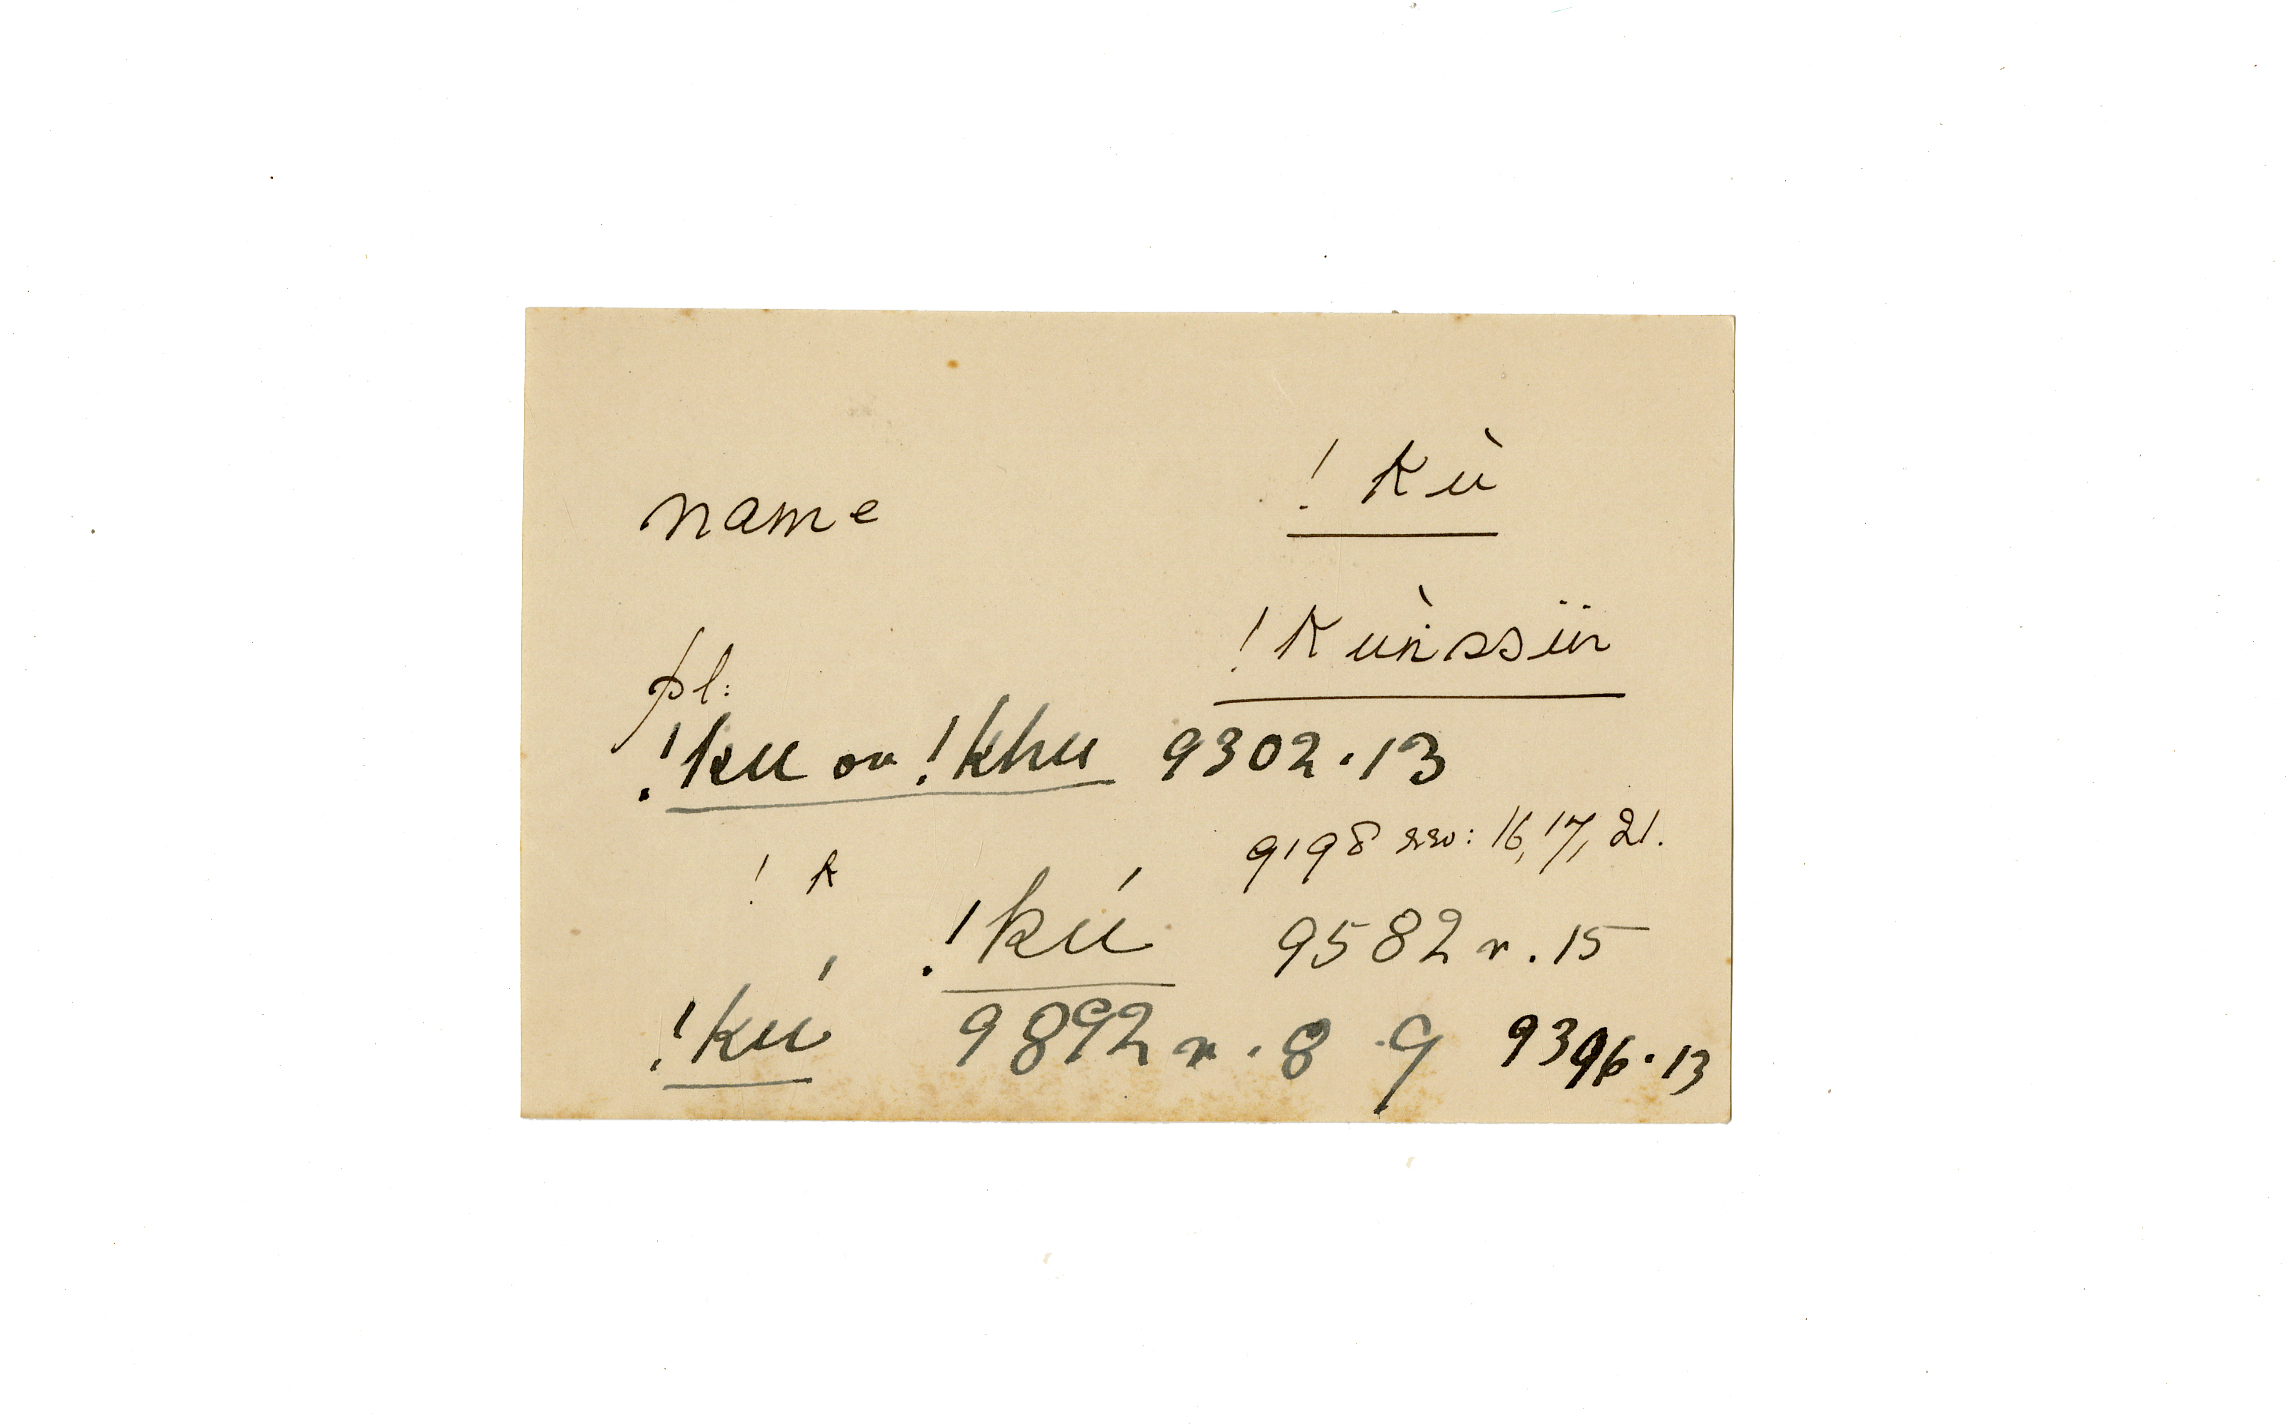 name !kù
pl: !kuǹssïn
!ku or !khu 9302.13
9198 rev: 16, 17, 21.
! k
!kú 9582 r. 15
!kú 9892 r. 8 9 9396.13